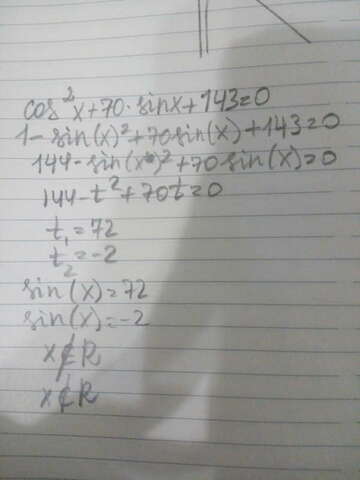 cos²x+70·sinx+143=0
1-sin(x)²+70sin(x)+143=0
144-sin(x)²+70sin(x)=0
144-t²+70t=0
t₁=72
t₂=-2
sin(x)=72
sin(x)=-2
x∉R
x∉R